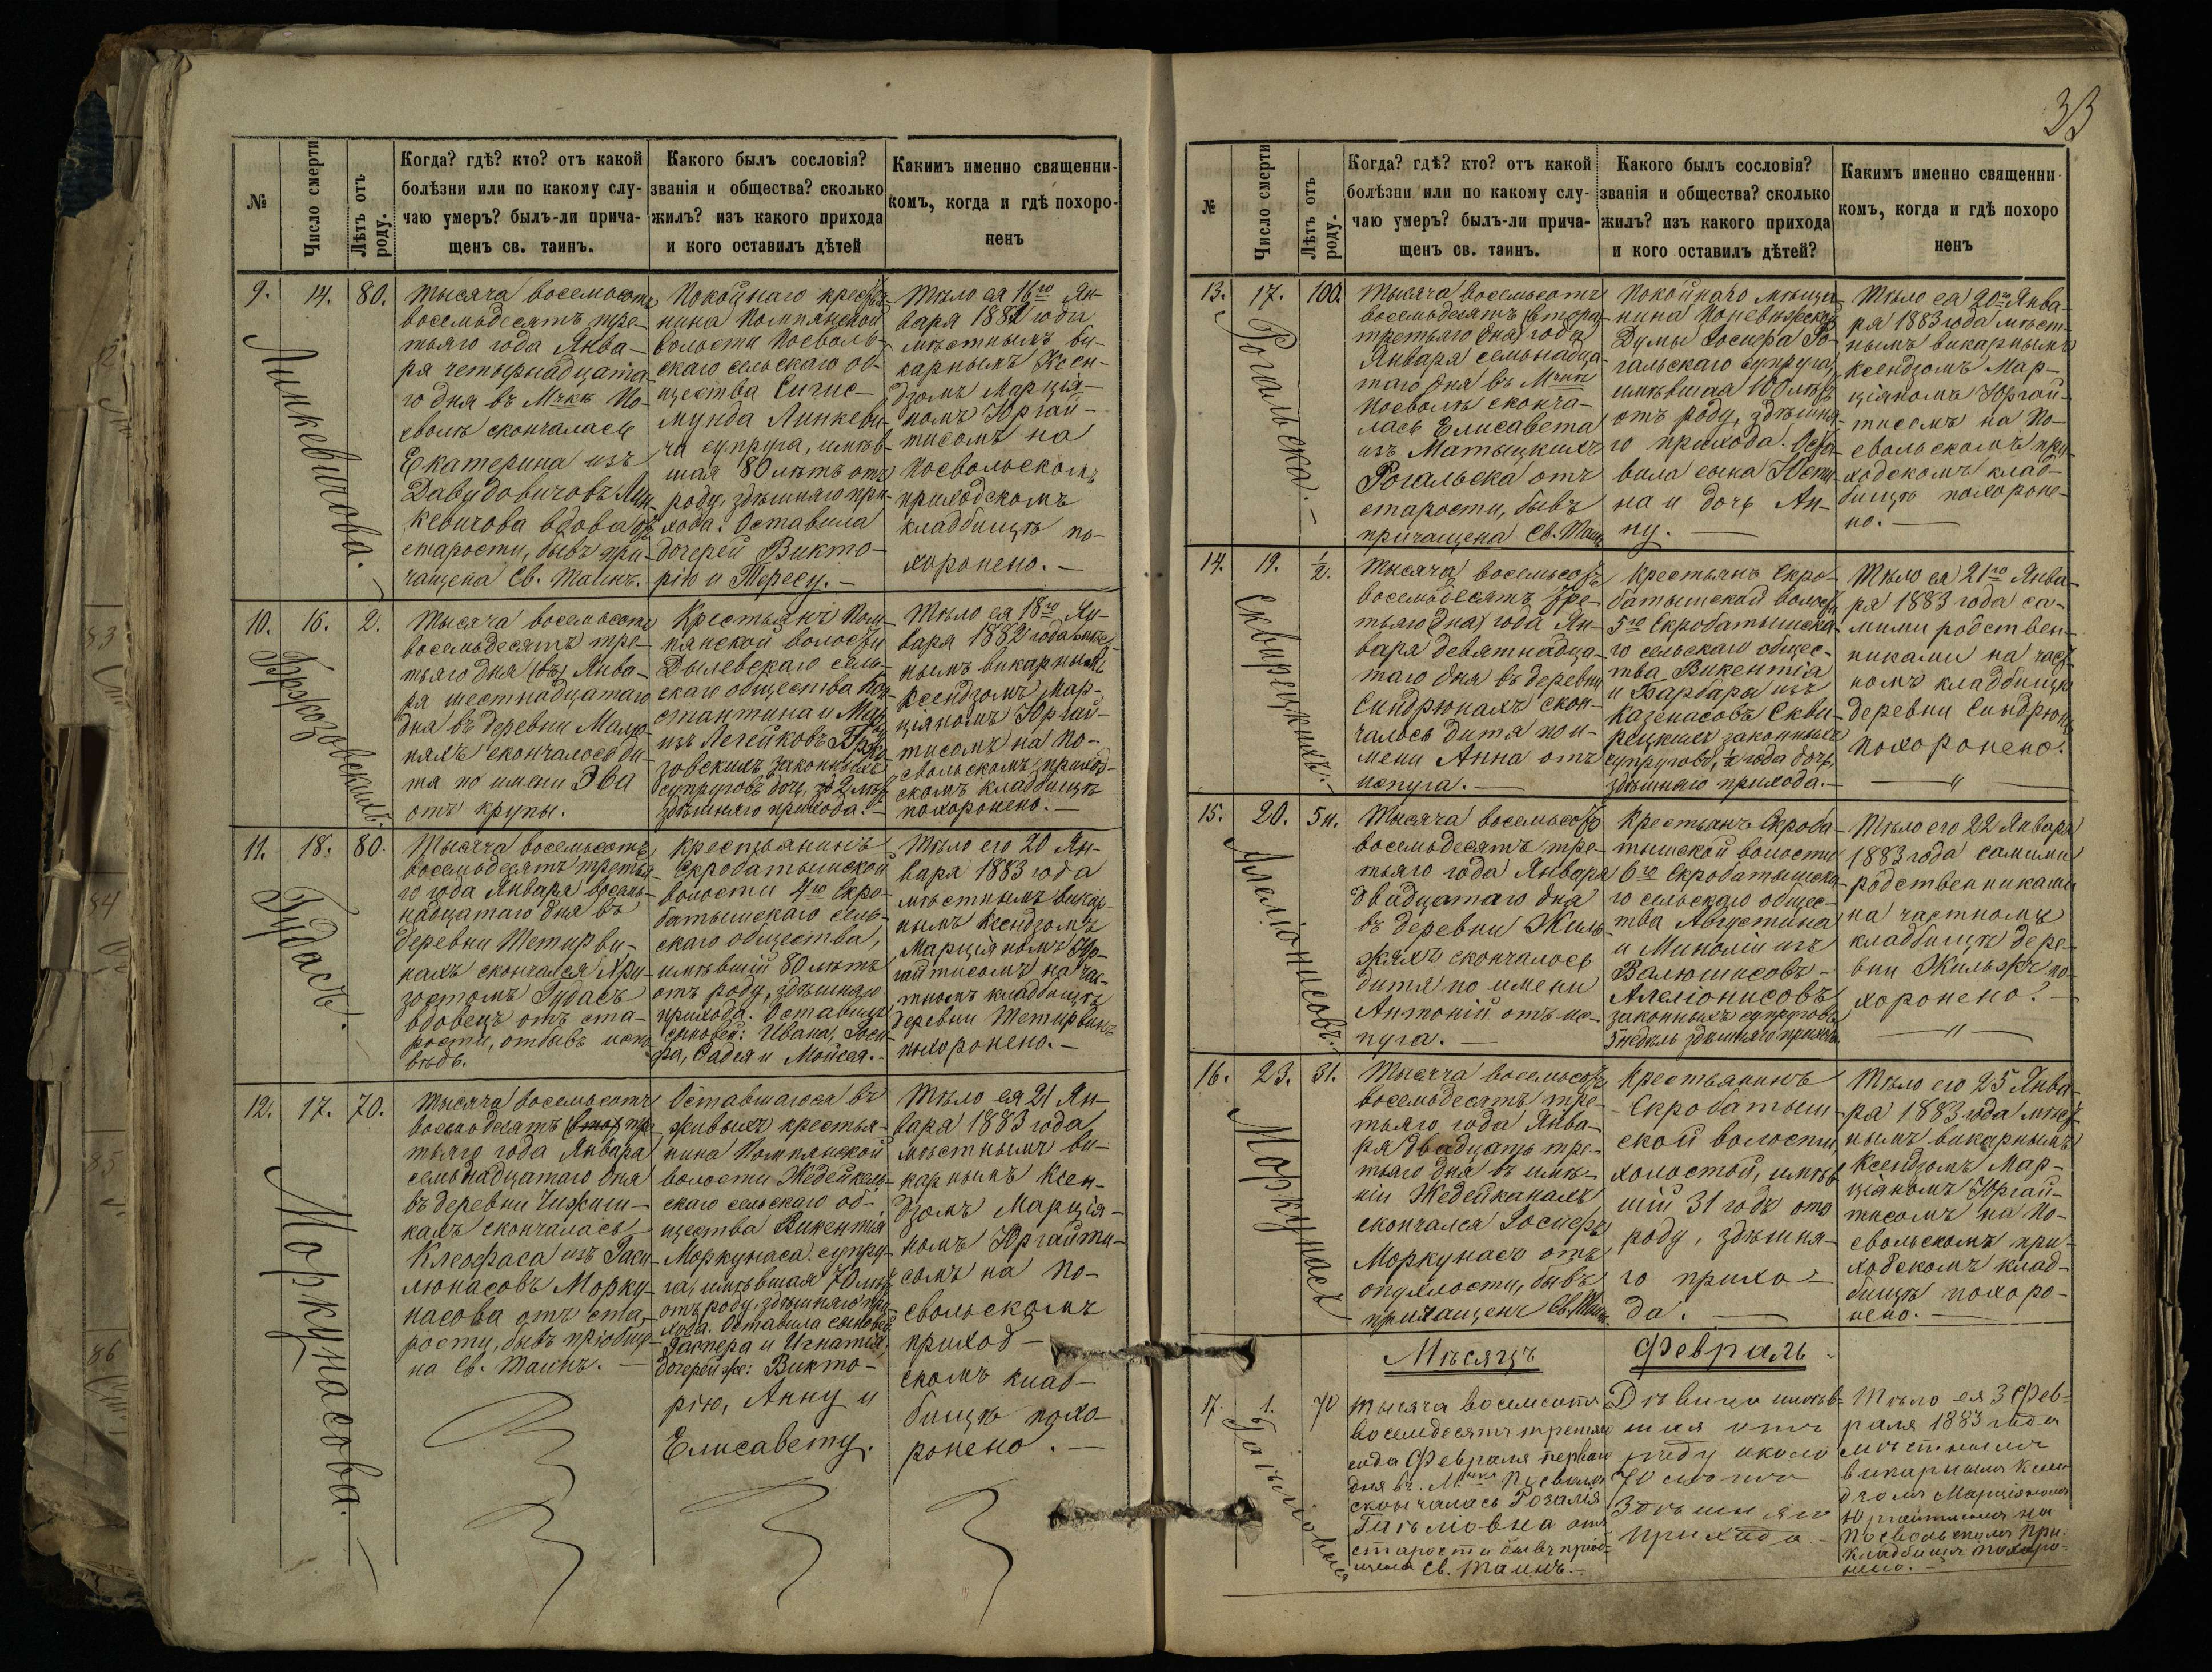 33
№
Число смерти
Лѣтъ отъ роду.
Когда? гдѣ? кто? отъ какой
болѣзни или по какому слу-
чаю умеръ? былъ-ли прича-
щенъ св. таинъ.
Какого былъ сословія?
званія и общества? сколько
жилъ? изъ какого прихода
и кого оставилъ дѣтей
Какимъ именно священни-
комъ, когда и гдѣ похоро-
ненъ
9.
14.
80.
Линкевичова.
Тысяча восемьсотъ
восемьдесятъ тре-
тьяго года Янва-
ря четырнадцата-
го дня въ Мчкѣ По-
сволѣ скончалась
Екатерина изъ
Давудовичовъ Лин-
кевичова вдова отъ
старости, бывъ при-
чащена Св. Таинъ.
Покойнаго кресть-
нина Помпянской
волости Посволь-
скаго сельскаго об-
щества Сигис-
мунда Линкеви-
ча супруга, имѣв-
шая 80 лѣтъ отъ
роду, здѣшняго при-
хода. Оставила
дочерей Викто-
рію и Тересу.
Тѣло ея 16го Ян-
варя 1883 года
мѣстнымъ ви-
карнымъ Ксен-
дзомъ Марція-
номъ Юргай-
тисомъ на
Посвольскомъ
приходскомъ
кладбищѣ по-
хоронено.
10.
16.
2.
Бржозовскихъ.
Тысяча восемьсотъ
восемьдесятъ тре-
тьяго дня Янва-
ря шестнадцатаго
дня въ деревни Малю-
няхъ скончалось ди-
тя по имени Эва
отъ крупы.
Крестьянъ Пом-
пянской волости
Дылевскаго сель-
скаго общества Кон-
стантина и
изъ Легейковъ Бржо-
зовскихъ законныхъ
супруговъ дочь, 2 лѣтъ
здѣшняго прихода.
Тѣло ея 18го Ян-
варя 1883 года мѣст-
нымъ викарнымъ
Ксендзомъ Мар-
ціяномъ Юргай-
тисомъ на По-
свольскомъ приход-
скомъ кладбищѣ
похоронено.
11.
18.
80.
Гудасъ.
Тысяча восемьсотъ
восемьдесятъ третья-
го года Января восемь-
надцатаго дня въ
деревни Тетирви-
нахъ скончался Хри-
зостомъ Гудасъ
вдовецъ отъ ста-
рости, отбывъ испо-
вѣдь.
Крестьянинъ
Скробатышской
волости 4го Скро-
батышскаго сель-
скаго общества,
имѣвшій 80 лѣтъ
отъ роду, здѣшняго
прихода. Оставилъ
сыновей: Ивана, Госи-
фа, Фадея и Мойсея.
Тѣло его 20 Ян-
варя 1883 года
мѣстнымъ викар-
нымъ Ксендзомъ
Марціяномъ Юр-
гайтисомъ на час-
тномъ кладбищѣ
деревни Тетирвинъ
похоронено.
12.
17.
70.
Моркунасова.
Тысяча восемьсотъ
восемьдесятъ тре-
тьяго года Января
семьнадцатаго дня
въ деревни Чижиш-
кахъ скончалась
Клеофаса изъ Гаси-
люнасовъ Морку-
насова отъ ста-
рости, бывъ пріобще-
на Св. Таинъ.
Оставшагося въ
живыхъ крестья-
нина Помпянской
волости Жедейкель-
скаго сельскаго об-
щества Викентія
Моркунаса супру-
га, имѣвшая 70 лѣтъ
отъ роду, здѣшняго при-
хода. Оставила сыновей
Гаспера и Игнатія,
дочерей же: Викто-
рію, Анну и
Елисавету.
Тѣло ея 21 Ян-
варя 1883 года
мѣстнымъ ви-
карнымъ Ксен-
дзомъ Марція-
номъ Юргайти-
сомъ на По-
свольскомъ
приход-
скомъ клад-
бищѣ похо-
ронено.
№
Число смерти
Лѣтъ отъ роду.
Когда? гдѣ? кто? отъ какой
болѣзни или по какому слу-
чаю умеръ? былъ-ли прича-
щенъ св. таинъ.
Какого былъ сословія?
званія и общества? сколько
жилъ? изъ какого прихода
и кого оставилъ дѣтей?
Какимъ именно священни
комъ, когда и гдѣ похоро
ненъ
13.
17.
100.
Рогальска.
Тысяча восемьсотъ
восемьдесятъ
третьяго года
Января семьнадца-
таго дня въ Мчкѣ
Посволѣ сконча-
лась Елисавета
изъ Матыцкихъ
Рогальска отъ
старости, бывъ
причащена Св. Таинъ
Покойнаго мѣща-
нина Поневѣжской
Думы Госифа Ро-
гальскаго супруга,
имѣвшая 100 лѣтъ
отъ роду, здѣшня-
го прихода. Оста-
вила сына Юсти-
на и дочь Ан-
ну.
Тѣло ея 20го Янва-
ря 1883 года мѣст-
нымъ викарнымъ
Ксендзомъ Мар-
ціяномъ Юргай-
тисомъ на По-
свольскомъ при-
ходскомъ клад-
бищѣ похороне-
но.
14.
19.
½.
Сквирецкихъ.
Тысяча восемьсотъ
восемьдесятъ тре-
тьяго года Ян-
варя девятнадца-
таго дня въ деревни
Синдрюнахъ скон-
чалось дитя по и-
мени Анна отъ
испуга.
Крестьянъ Скро-
батышской волости
5го Скробатышска-
го сельскаго общес-
тва Викентія
и Варвары изъ
Казенасовъ Скви-
рецкихъ законныхъ
супруговъ, ½ года дочь,
здѣшняго прихода.
Тѣло ея 21го Янва-
ря 1883 года са-
мими родствен-
никами на част-
номъ кладбищѣ
деревни Синдрюнъ
похоронено.
15.
20.
5 н.
Алеліонисовъ.
Тысяча восемьсотъ
восемьдесятъ тре-
тьяго года Января
двадцатаго дня
въ деревни Жиль-
жяхъ скончалось
дитя по имени
Антоній отъ ис-
пуга.
Крестьянъ Скроба-
тышской волости
6го Скробатышска-
го сельскаго общес-
тва Августина
и Минолій изъ
Валюшисовъ-
Алеліонисовъ
законныхъ супруговъ
5 недѣль здѣшняго прихода.
Тѣло его 22 Января
1883 года самими
родственниками
на частномъ
кладбищѣ дере-
вни Жильжъ по-
хоронено.
16.
23.
31.
Моркунасъ
Тысяча восемьсотъ
восемьдесятъ тре-
тьяго года Янва-
ря двадцать тре-
тьяго дня въ имѣ-
ніи Жедейканахъ
скончался Госифъ
Моркунасъ отъ
опухлости, бывъ
причащенъ Св. Таинъ.
Крестьянинъ
Скробатыш-
ской волости
холостой, имѣв
шій 31 годъ отъ
роду, здѣшня-
го прихо-
да.
Тѣло его 25 Янва-
ря 1883 года мѣст-
нымъ викарнымъ
Ксендзомъ Мар-
ціяномъ Юргай-
тисомъ на По-
свольскомъ при-
ходскомъ клад-
бищѣ похоро-
нено.
Мѣсяцъ Февраль
17.
1.
70
Тысяча восемсотъ
восемдесятъ третяго
года Февраля перваго
дня въ Мчкѣ Посволѣ
скончалась Розалія
отъ
старости бывъ пріоб-
щена Св. Таинъ.
Дѣвица имѣв-
шая отъ
роду около
70 лѣтъ
здѣшняго
прихода
Тѣло ея 3 Фев-
раля 1883 года
мѣстнымъ
викарнымъ Ксен
дзомъ Марціяномъ
Юргайтисомъ на
Посвольскомъ при.
кладбищѣ похоро-
нено.